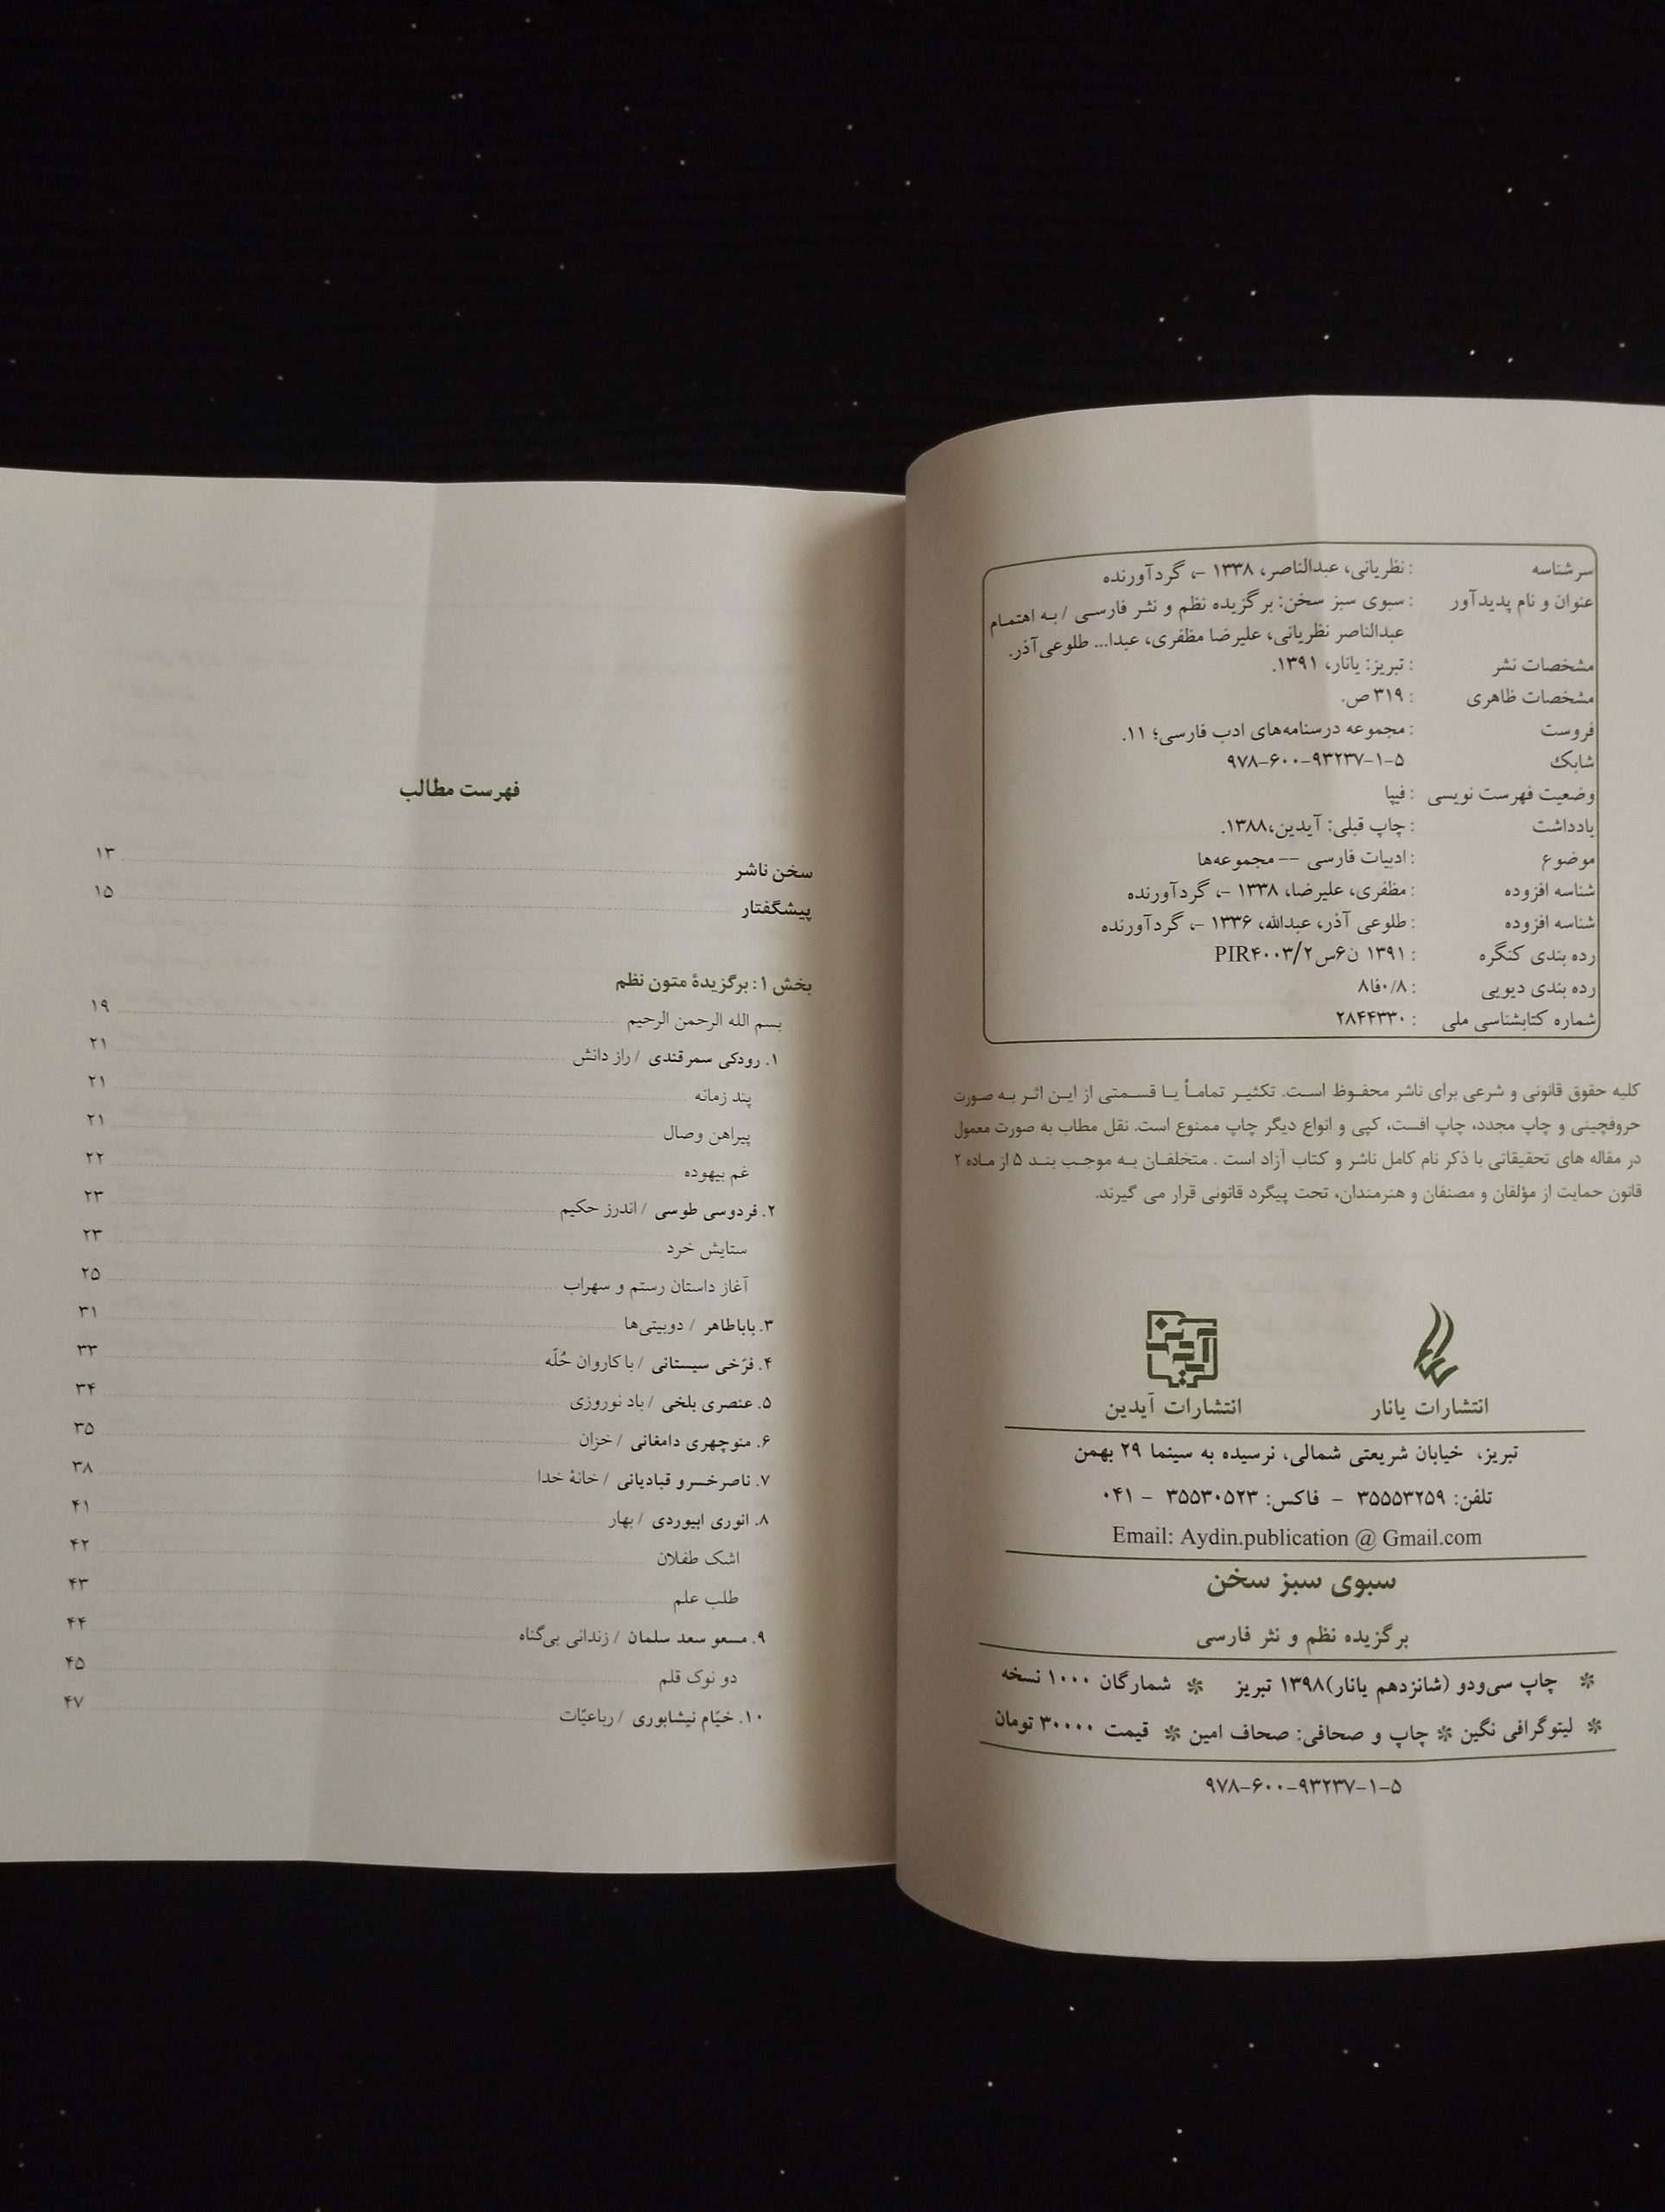 سرشناسه : نظریانی، عبدالناصر، ۱۳۳۸ –، گردآورنده
عنوان و نام پدیدآور : سبوی سبز سخن: برگزیده نظم و نثر فارسی / به اهتمام
عبدالناصر نظریانی، علیرضا مظفری، عبدا... طلوعی‌آذر.
مشخصات نشر : تبریز: یانار، ۱۳۹۱.
مشخصات ظاهری : ۳۱۹ ص.
فروست : مجموعه درسنامه‌های ادب فارسی؛ ۱۱.
شابک ۹۷۸-۶۰۰-۹۳۲۳۷-۱-۵
وضعیت فهرست نویسی : فیپا
یادداشت : چاپ قبلی: آیدین،۱۳۸۸.
موضوع : ادبیات فارسی -- مجموعه‌ها
شناسه افزوده : مظفری، علیرضا، ۱۳۳۸ –، گردآورنده
شناسه افزوده : طلوعی آذر، عبدالله، ۱۳۳۶ –، گردآورنده
رده بندی کنگره : ۱۳۹۱ ن۶س۲/PIR۴۰۰۳
رده بندی دیویی : ۸فا۰/۸
شماره کتابشناسی ملی : ۲۸۴۴۳۳۰
کلیه حقوق قانونی و شرعی برای ناشر محفوظ است. تکثیر تماماً یا قسمتی از این اثر به صورت
حروفچینی و چاپ مجدد، چاپ افست، کپی و انواع دیگر چاپ ممنوع است. نقل مطاب به صورت معمول
در مقاله های تحقیقاتی با ذکر نام کامل ناشر و کتاب آزاد است . متخلفان به موجب بند ۵ از ماده ۲
قانون حمایت از مؤلفان و مصنفان و هنرمندان، تحت پیگرد قانونی قرار می گیرند.
آیدین
انتشارات یانار انتشارات آیدین
تبریز، خیابان شریعتی شمالی، نرسیده به سینما ۲۹ بهمن
تلفن: ۳۵۵۵۳۲۵۹ – فاکس: ۳۵۵۳۰۵۲۳ – ۰۴۱
Email: Aydin.publication @ Gmail.com
سبوی سبز سخن
برگزیده نظم و نثر فارسی
✼ چاپ سی‌ودو (شانزدهم یانار)۱۳۹۸ تبریز ✼ شمارگان ۱۰۰۰ نسخه
✼ لیتوگرافی نگین ✼ چاپ و صحافی: صحاف امین ✼ قیمت ۳۰۰۰۰ تومان
۹۷۸-۶۰۰-۹۳۲۳۷-۱-۵
فهرست مطالب
سخن ناشر ۱۳
پیشگفتار ۱۵
بخش ۱: برگزیدهٔ متون نظم
بسم الله الرحمن الرحیم ۱۹
۱. رودکی سمرقندی / راز دانش ۲۱
پند زمانه ۲۱
پیراهن وصال ۲۱
غم بیهوده ۲۲
۲. فردوسی طوسی / اندرز حکیم ۲۳
ستایش خرد ۲۳
آغاز داستان رستم و سهراب ۲۵
۳. باباطاهر / دوبیتی‌ها ۳۱
۴. فرّخی سیستانی / با کاروان حُلّه ۳۳
۵. عنصری بلخی / باد نوروزی ۳۴
۶. منوچهری دامغانی / خزان ۳۵
۷. ناصرخسرو قبادیانی / خانهٔ خدا ۳۸
۸. انوری ابیوردی / بهار ۴۱
اشک طفلان ۴۲
طلب علم ۴۳
۹. مسعو سعد سلمان / زندانی بی‌گناه ۴۴
دو نوک قلم ۴۵
۱۰. خیّام نیشابوری / رباعیّات ۴۷